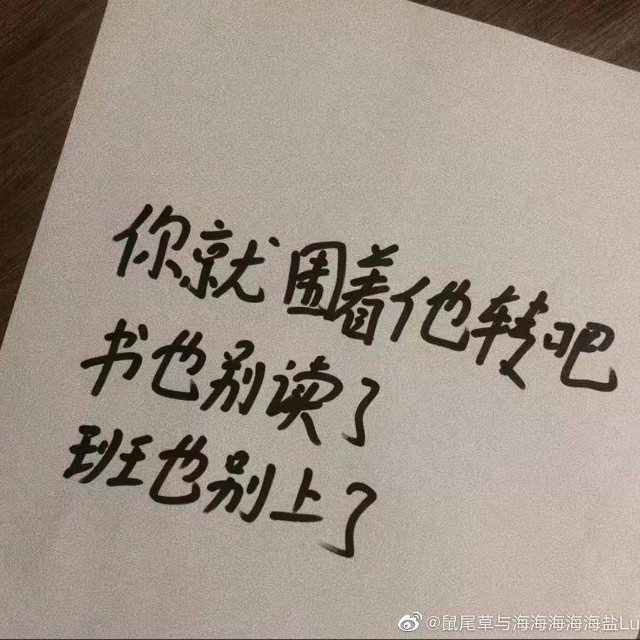 你就围着他转吧
书也别读了
班也别上了
@鼠尾草与海海海海海盐Lu